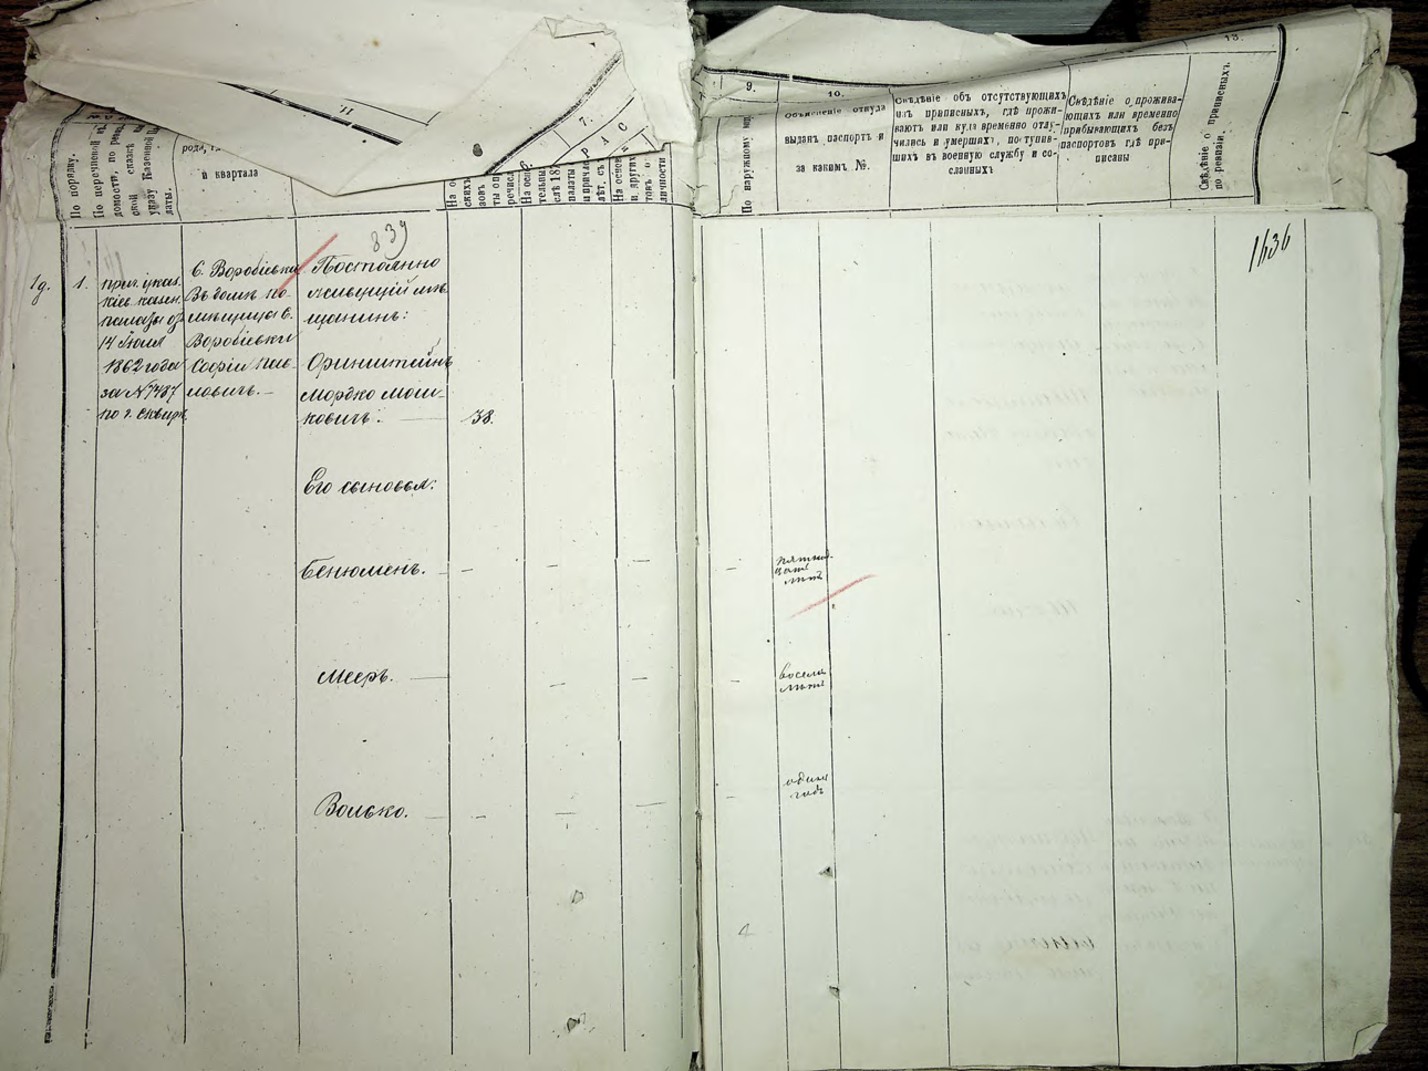 11
7.
Р А С
По порядку.
По перечневой вѣ-
домости, по реви-
ской сказкѣ
указу Казенной Па-
латы.
и квартала
9.
10.
13.
По наружному
Объясненіе откуда
выданъ паспортъ и
за какимъ №.
Свѣдѣніе объ отсутствующихъ
изъ приписныхъ, гдѣ прожи-
ваютъ или куда временно отлу-
чились и умершихъ, поступив-
шихъ въ военную службу и со-
сланныхъ
Свѣдѣніе о прожива-
ющихъ или временно
прибывающихъ безъ
паспортовъ гдѣ при-
писаны
Свѣдѣніе о приписныхъ
по ревизіи.
839
1636
1д.
1.
прич. указ.
кіев. казен.
палаты от
14 Іюля
1862 года
за №7487
по г. Сквирѣ
С. Воробіевка
Въ домѣ по-
мѣщицы С.
Воробіевки
Софіи Пав-
ловичъ.—
Постоянно
живущій мѣ-
щанинъ:
Оринштейнъ
Мордко Мош-
ковичъ. — 38.
Его сыновья:
Бенюменъ. — — — — —
пятнад-
цать
лѣтъ
Мееръ. — — — —
восемь
лѣтъ
Волько. — — — — —
одинъ
годъ